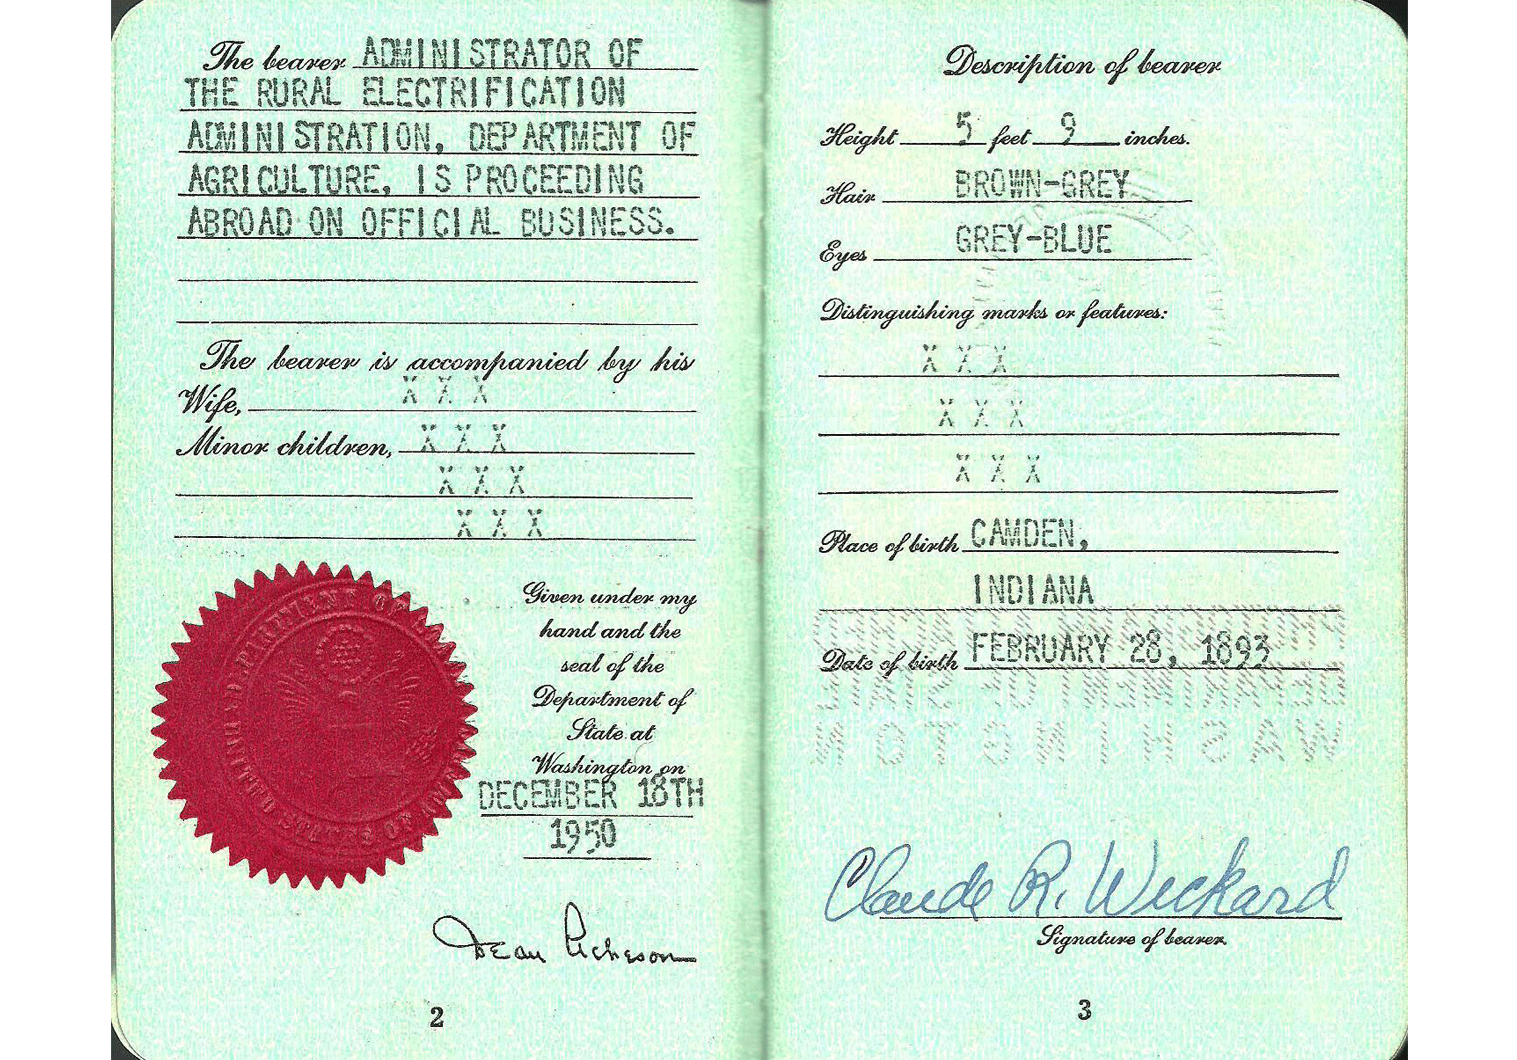 The bearer ADMINISTRATOR OF
THE RURAL ELECTRIFICATION
ADMINISTRATION, DEPARTMENT OF
AGRICULTURE, IS PROCEEDING
ABROAD ON OFFICIAL BUSINESS.
The bearer is accompanied by his
Wife, X X X
Minor children, X X X
X X X
X X X
DEPARTMENT OF
UNITED STATES OF
Given under my
hand and the
seal of the
Department of
State at
Washington on
DECEMBER 18TH
1950
Dean Acheson
2
Description of bearer
Height 5 feet 9 inches.
Hair BROWN-GREY
Eyes GREY-BLUE
Distinguishing marks or features:
X X X
X X X
X X X
Place of birth CAMDEN,
INDIANA
Date of birth FEBRUARY 28, 1893
DEPARTMENT OF STATE
WASHINGTON
Claude R. Wickard
Signature of bearer
3